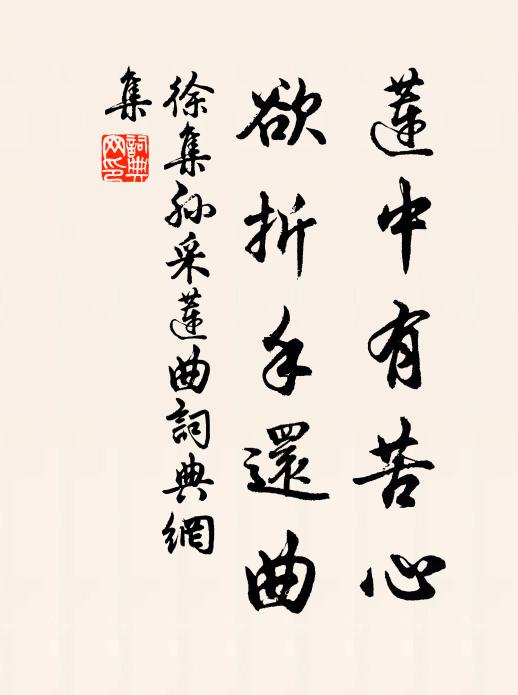 蓮中有苦心
欲折手還曲
徐集孙采蓮曲詞典網
集
詞典網印